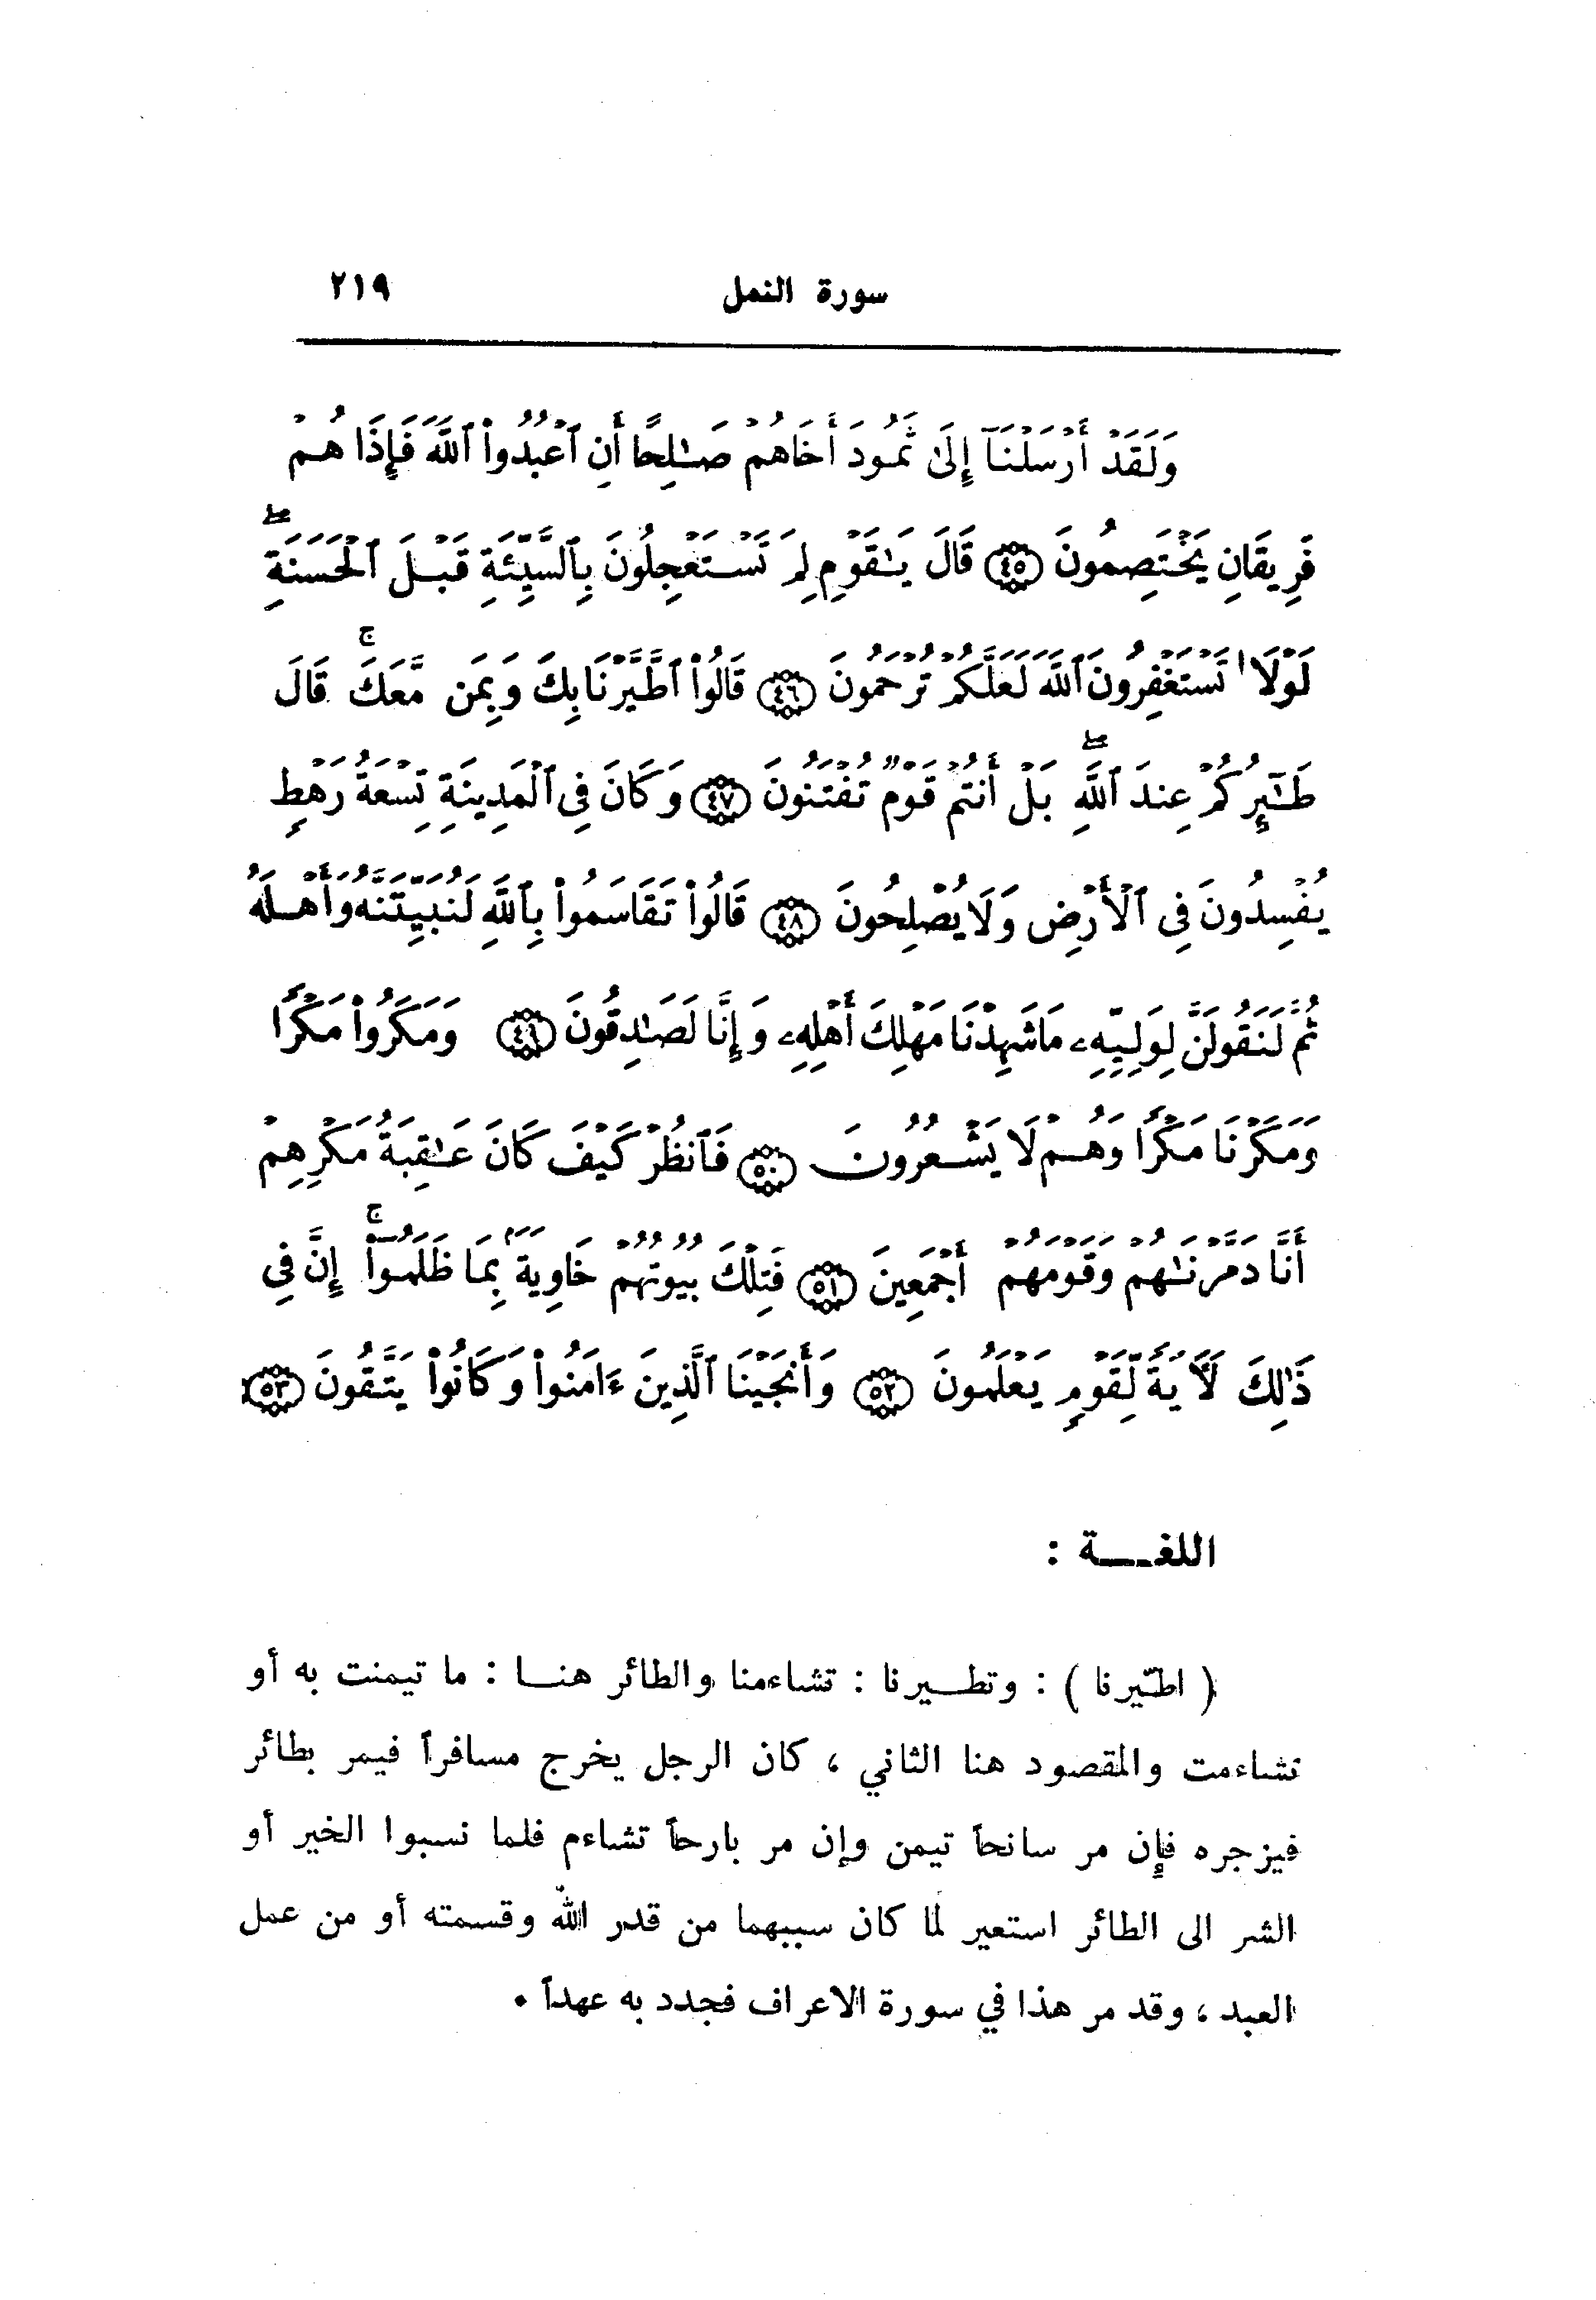 سورة النمل ٢١٩
وَلَقَدْ أَرْسَلْنَآ إِلَىٰ ثَمُودَ أَخَاهُمْ صَـٰلِحًا أَنِ ٱعْبُدُوا۟ ٱللَّهَ فَإِذَا هُمْ
فَرِيقَانِ يَخْتَصِمُونَ ﴿٤٥﴾ قَالَ يَـٰقَوْمِ لِمَ تَسْتَعْجِلُونَ بِٱلسَّيِّئَةِ قَبْلَ ٱلْحَسَنَةِ ۖ
لَوْلَا تَسْتَغْفِرُونَ ٱللَّهَ لَعَلَّكُمْ تُرْحَمُونَ ﴿٤٦﴾ قَالُوا۟ ٱطَّيَّرْنَا بِكَ وَبِمَن مَّعَكَ ۚ قَالَ
طَـٰٓئِرُكُمْ عِندَ ٱللَّهِ ۖ بَلْ أَنتُمْ قَوْمٌ تُفْتَنُونَ ﴿٤٧﴾ وَكَانَ فِى ٱلْمَدِينَةِ تِسْعَةُ رَهْطٍ
يُفْسِدُونَ فِى ٱلْأَرْضِ وَلَا يُصْلِحُونَ ﴿٤٨﴾ قَالُوا۟ تَقَاسَمُوا۟ بِٱللَّهِ لَنُبَيِّتَنَّهُۥ وَأَهْلَهُۥ
ثُمَّ لَنَقُولَنَّ لِوَلِيِّهِۦ مَا شَهِدْنَا مَهْلِكَ أَهْلِهِۦ وَإِنَّا لَصَـٰدِقُونَ ﴿٤٩﴾ وَمَكَرُوا۟ مَكْرًا
وَمَكَرْنَا مَكْرًا وَهُمْ لَا يَشْعُرُونَ ﴿٥٠﴾ فَٱنظُرْ كَيْفَ كَانَ عَـٰقِبَةُ مَكْرِهِمْ
أَنَّا دَمَّرْنَـٰهُمْ وَقَوْمَهُمْ أَجْمَعِينَ ﴿٥١﴾ فَتِلْكَ بُيُوتُهُمْ خَاوِيَةًۢ بِمَا ظَلَمُوٓا۟ ۚ إِنَّ فِى
ذَٰلِكَ لَـَٔايَةً لِّقَوْمٍ يَعْلَمُونَ ﴿٥٢﴾ وَأَنجَيْنَا ٱلَّذِينَ ءَامَنُوا۟ وَكَانُوا۟ يَتَّقُونَ ﴿٥٣﴾
اللغـــة :
( اطّيرنا ) : وتطــيرنا : تشاءمنا والطائر هنــا : ما تيمنت به أو
تشاءمت والمقصود هنا الثاني ، كان الرجل يخرج مسافراً فيمر بطائر
فيزجره فإن مر سانحاً تيمن وإن مر بارحاً تشاءم فلما نسبوا الخير أو
الشر الى الطائر استعير لما كان سببهما من قدر الله وقسمته أو من عمل
العبد ، وقد مر هذا في سورة الاعراف فجدد به عهداً ٠